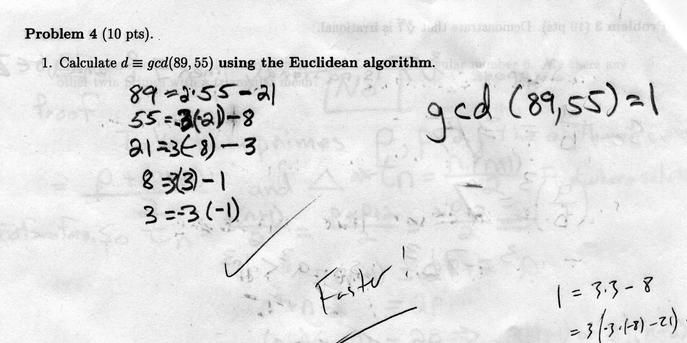 Problem 4 (10 pts).
1. Calculate d ≡ gcd(89, 55) using the Euclidean algorithm.
89 = 2·55 - 21
55 = -3(-21) - 8
gcd (89,55) = 1
21 = -3(-8) - 3
8 = 3(3) - 1
3 = -3(-1)
Faster!
1 = 3·3 - 8
= 3(-3·(-8) - 21)